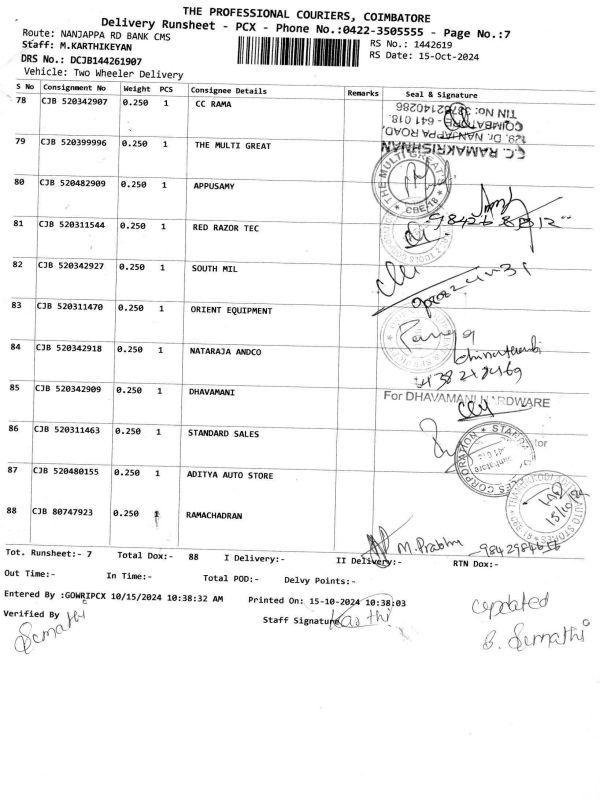 THE PROFESSIONAL COURIERS, COIMBATORE
Delivery Runsheet - PCX - Phone No.:0422-3505555 - Page No.:7
Route: NANJAPPA RD BANK CMS
Staff: M.KARTHIKEYAN
RS No.: 1442619
DRS No.: DCJB144261907
RS Date: 15-Oct-2024
Vehicle: Two Wheeler Delivery
S No Consignment No Weight PCS Consignee Details Remarks Seal & Signature
78 CJB 520342907 0.250 1 CC RAMA
C.C. RAMAKRISHNAN
129, Dr. NANJAPPA ROAD,
COIMBATORE - 641 018.
79 CJB 520399996 0.250 1 THE MULTI GREAT
THE MULTI GREAT'S
CBE-18
80 CJB 520482909 0.250 1 APPUSAMY
81 CJB 520311544 0.250 1 RED RAZOR TEC
82 CJB 520342927 0.250 1 SOUTH MIL
83 CJB 520311470 0.250 1 ORIENT EQUIPMENT
84 CJB 520342918 0.250 1 NATARAJA ANDCO
85 CJB 520342909 0.250 1 DHAVAMANI
For DHAVAMANI HARDWARE
86 CJB 520311463 0.250 1 STANDARD SALES
87 CJB 520480155 0.250 1 ADITYA AUTO STORE
15/10/24
88 CJB 80747923 0.250 1 RAMACHADRAN
M. Prabhu
Tot. Runsheet:- 7 Total Dox:- 88 I Delivery:- II Delivery:- RTN Dox:-
Out Time:- In Time:- Total POD:- Delvy Points:-
Entered By :GOWRIPCX 10/15/2024 10:38:32 AM Printed On: 15-10-2024 10:38:03
Verified By
Semathi
Staff Signature Karthi
Updated
B. Semathi